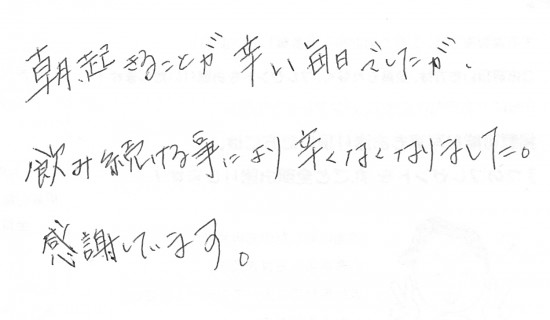 朝起きることが辛い毎日でしたが、
飲み続ける事により辛くなくなりました。
感謝しています。